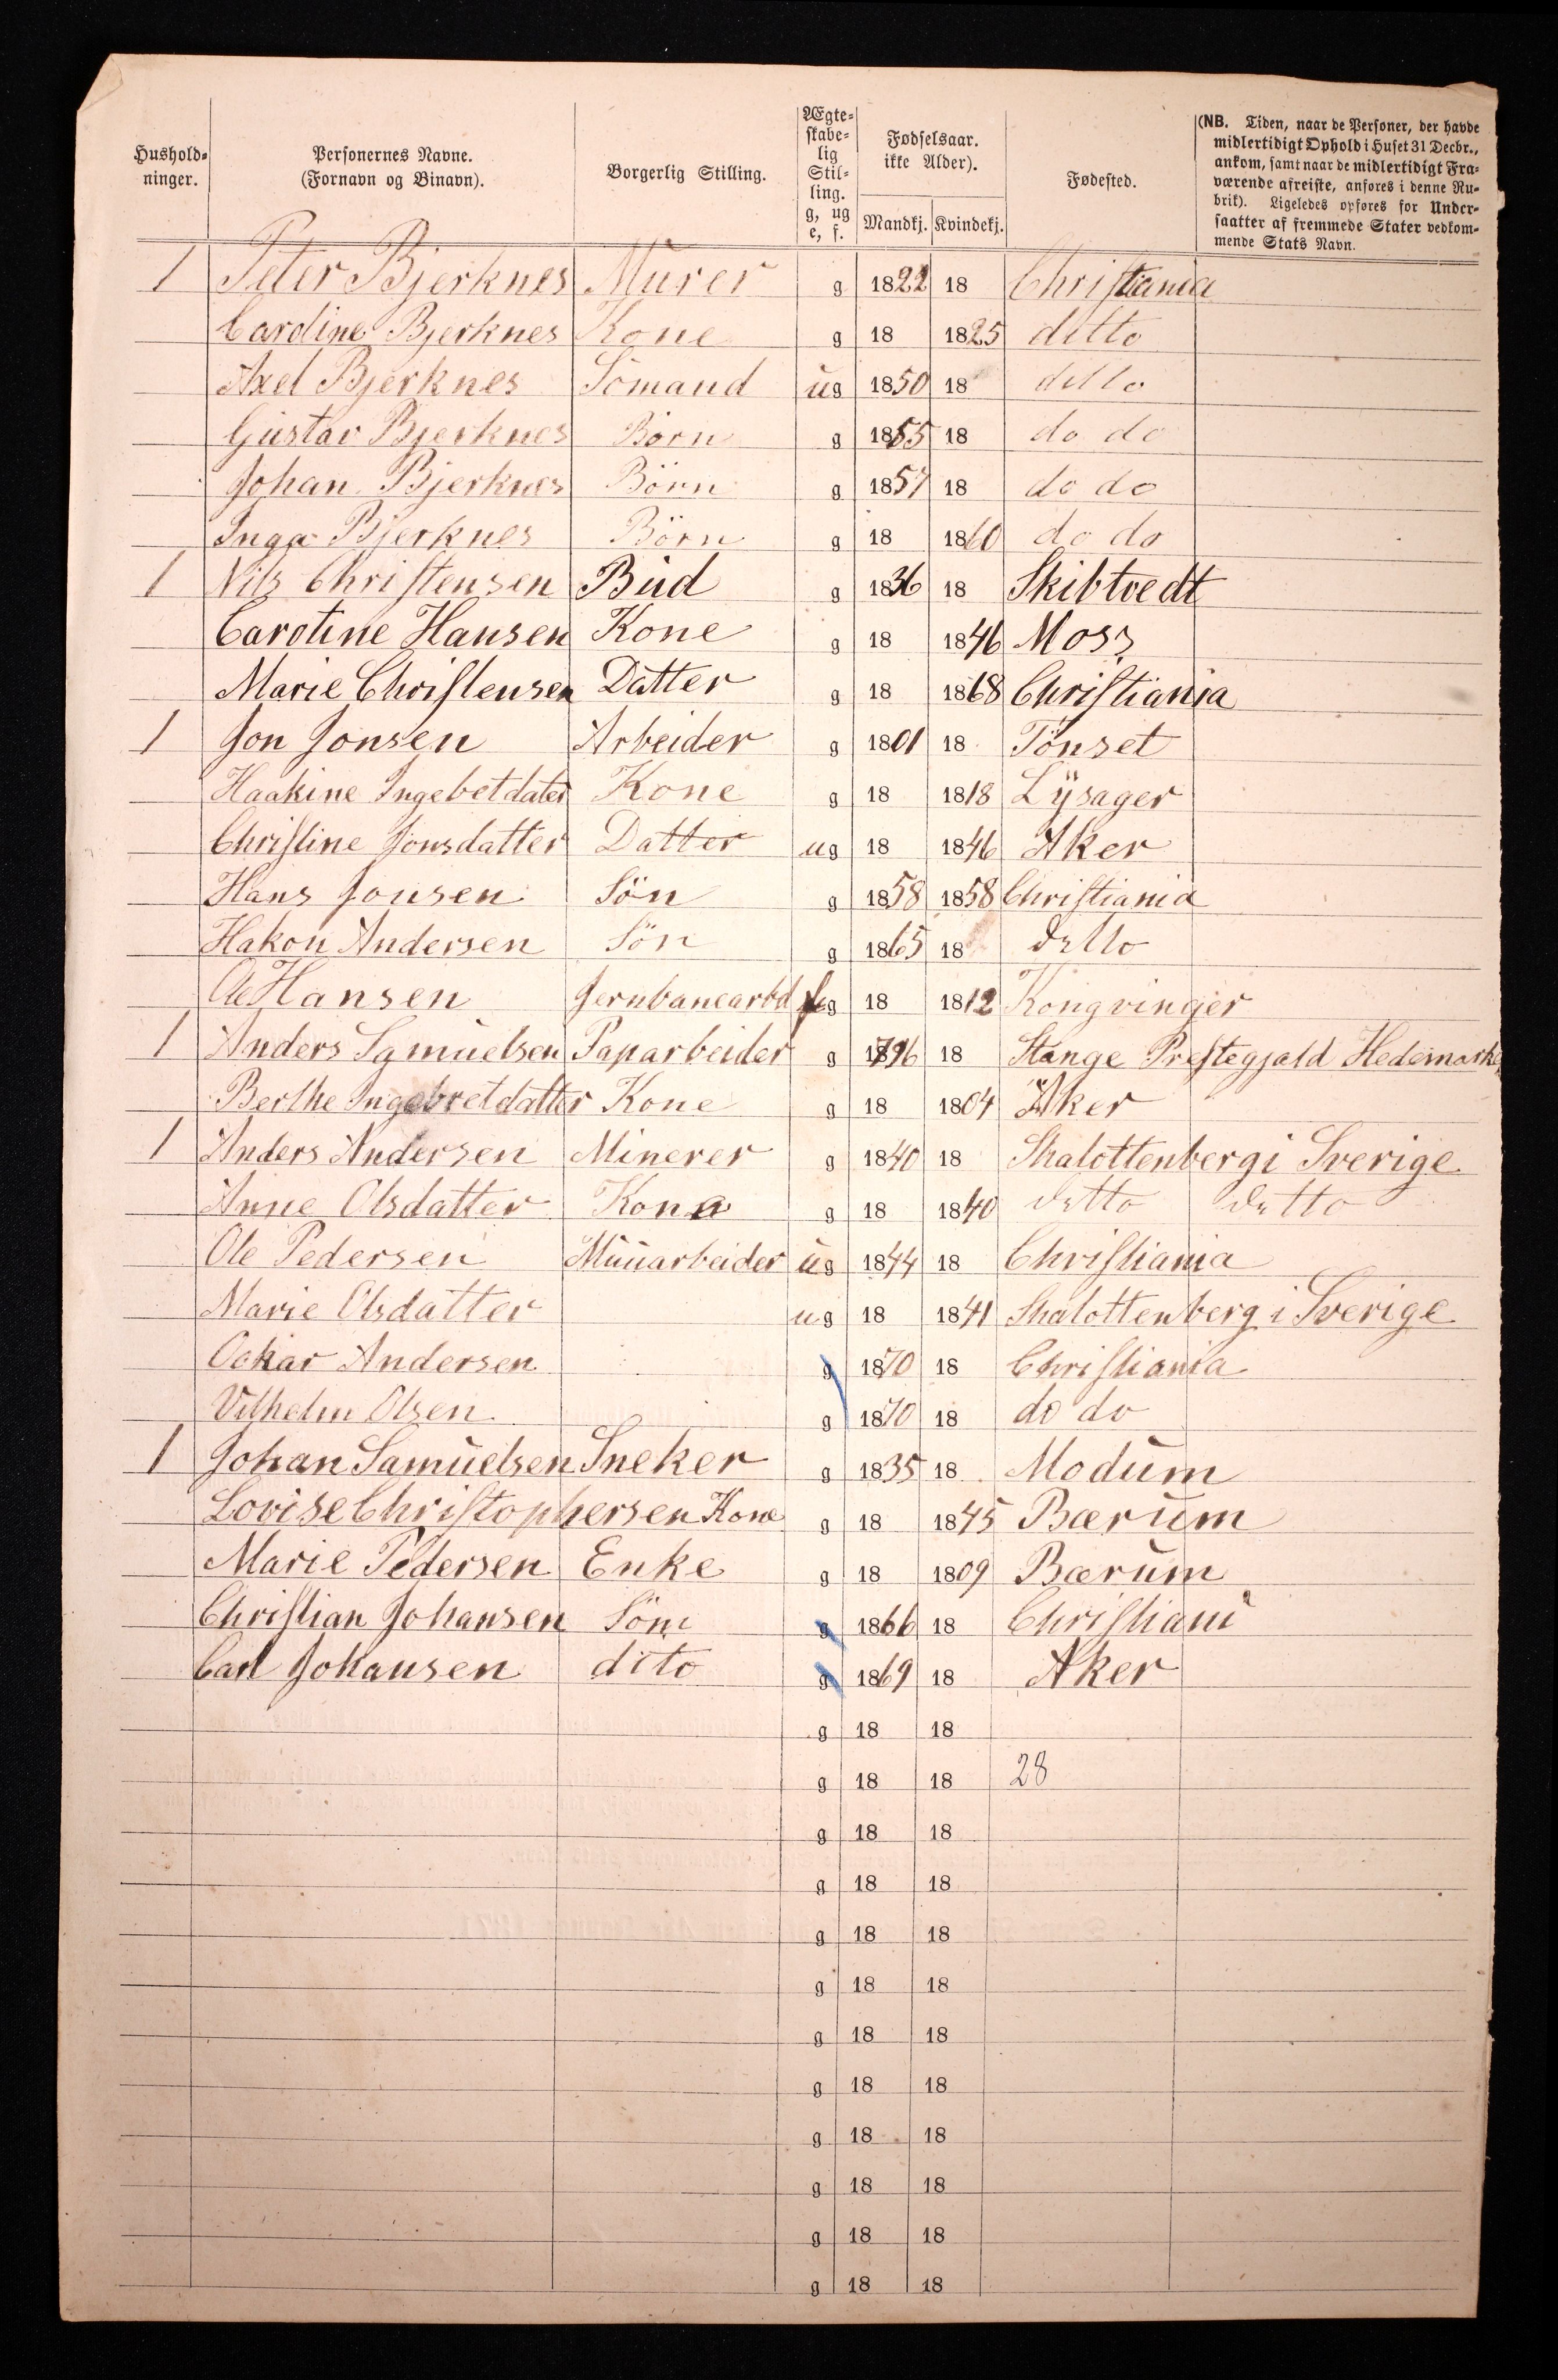 Hushold-ninger. Personernes Navne. (Fornavn og Binavn). Borgerlig Stilling. Ægte-skabe-lig Stil-ling. g, ug e, f. Fødselsaar. ikke Alder). Mandkj. Kvindekj. Fødested.
(NB. Tiden, naar de Personer, der havde
midlertidigt Ophold i Huset 31 Decbr.,
ankom, samt naar de midlertidigt Fra-
værende afreiste, anføres i denne Ru-
brik). Ligeledes opføres for Under-
saatter af fremmede Stater vedkom-
mende Stats Navn.
1 Peter Bjerknes Murer g 1822 18 Christiania
Caroline Bjerknes Kone g 18 1825 ditto
Axel Bjerknes Sömand ug 1850 18 ditto
Gustav Bjerknes Börn g 1855 18 do do
Johan Bjerknes Börn g 1857 18 do do
Inga Bjerknes Börn g 18 1860 do do
1 Nils Christensen Bud g 1836 18 Skibtvedt
Carotine Hansen Kone g 18 1846 Moss
Marie Christensen Datter g 18 1868 Christiania
1 Jon Jonsen Arbeider g 1801 18 Tönset
Haakine Ingebetdater Kone g 18 1818 Lysager
Christine Jonsdatter Datter ug 18 1846 Aker
Hans Jonsen Sön g 1858 1858 Christiania
Hakon Andersen Sön g 1865 18 ditto
Ole Hansen Jernbanearbd g 18 1812 Kongvinger
1 Anders Samuelsen Paparbeider g 1796 18 Stange Prestegjald Hedemarken
Berthe Ingebretdatter Kone g 18 1804 Aker
1 Anders Andersen Minerer g 1840 18 Skalottenberg i Sverige
Anne Olsdatter Kona g 18 1840 ditto ditto
Ole Pedersen Muuarbeider ug 1844 18 Christiania
Marie Olsdatter ug 18 1841 Skalottenberg i Sverige
Ockar Andersen g 1870 18 Christiania
Vilhelm Olsen g 1870 18 do do
1 Johan Samuelsen Sneker g 1835 18 Modum
Lovise Christophersen Kone g 18 1845 Bærum
Marie Pedersen Enke g 18 1809 Bærum
Christian Johansen Sön g 1866 18 Christiani
Carl Johansen dito g 1869 18 Aker
g 18 18
g 18 18 28
g 18 18
g 18 18
g 18 18
g 18 18
g 18 18
g 18 18
g 18 18
g 18 18
g 18 18
g 18 18